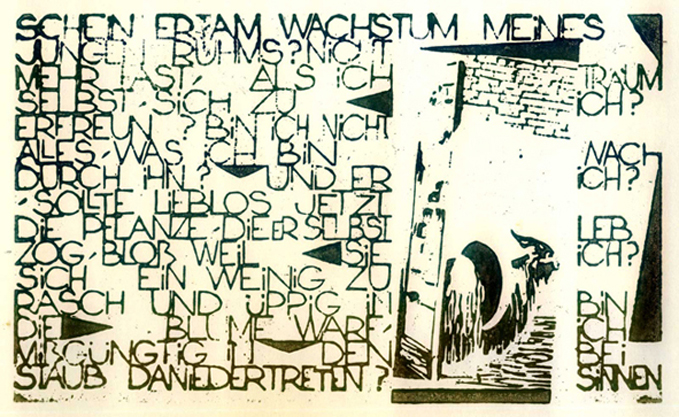 SCHEIN ERTAM WACHSTUM MEiNES
JUNGEN RUHMS? NiCHT
MEHR FAST, ALS iCH
SELBST, SiCH ZU
ERFREUN? BiN iCH NiCHT
ALLES, WAS iCH BiN
DURCH iHN? UND ER
, SOLLTE LiEBLOS JETZT
DiE PFLANZE, DiE ER SELBST
ZOG, BLOß WEiL SiE
SiCH EiN WENiG ZU
RASCH UND ÜPPiG iN
DiE BLUME WARF,
MißGÜNSTiG iN DEN
STAUB DANiEDERTRETEN?
TRAUM
iCH?
WACH
iCH?
LEB
iCH?
BiN
iCH
BEi
SiNNEN